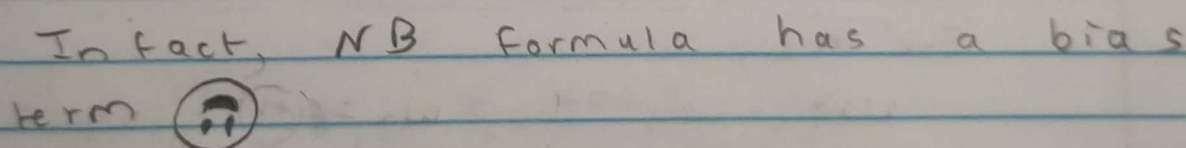 In fact, NB formula has a bias
term